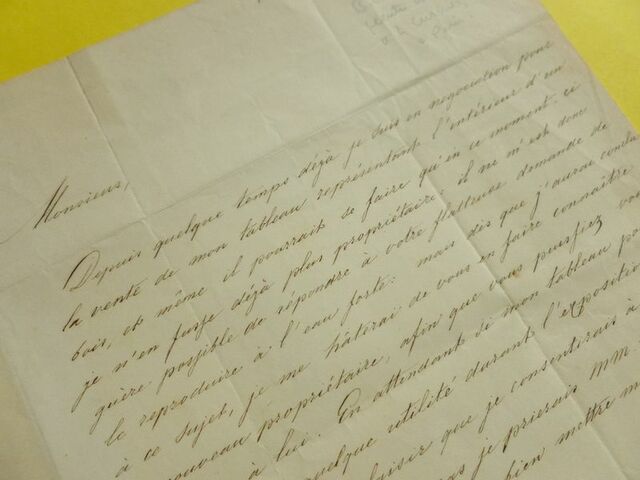 Monsieur,
Depuis quelque temps déjà je suis en négociation pour
la vente de mon tableau représentant l'intérieur d'un
bois, et même il pourrait se faire qu'en ce moment-ci
je n'en fusse déjà plus propriétaire; il ne m'est donc
guère possible de répondre à votre flatteuse demande de
le reproduire à l'eau forte: mais dès que j'aurai conclu
à ce sujet, je me hâterai de vous en faire connaître
nouveau propriétaire, afin que vous puissiez vous
à lui. En attendant si mon tableau pou
quelque utilité durant l'expositio
plaisir que je consentirais à
je prierais MM.
bien mettre m